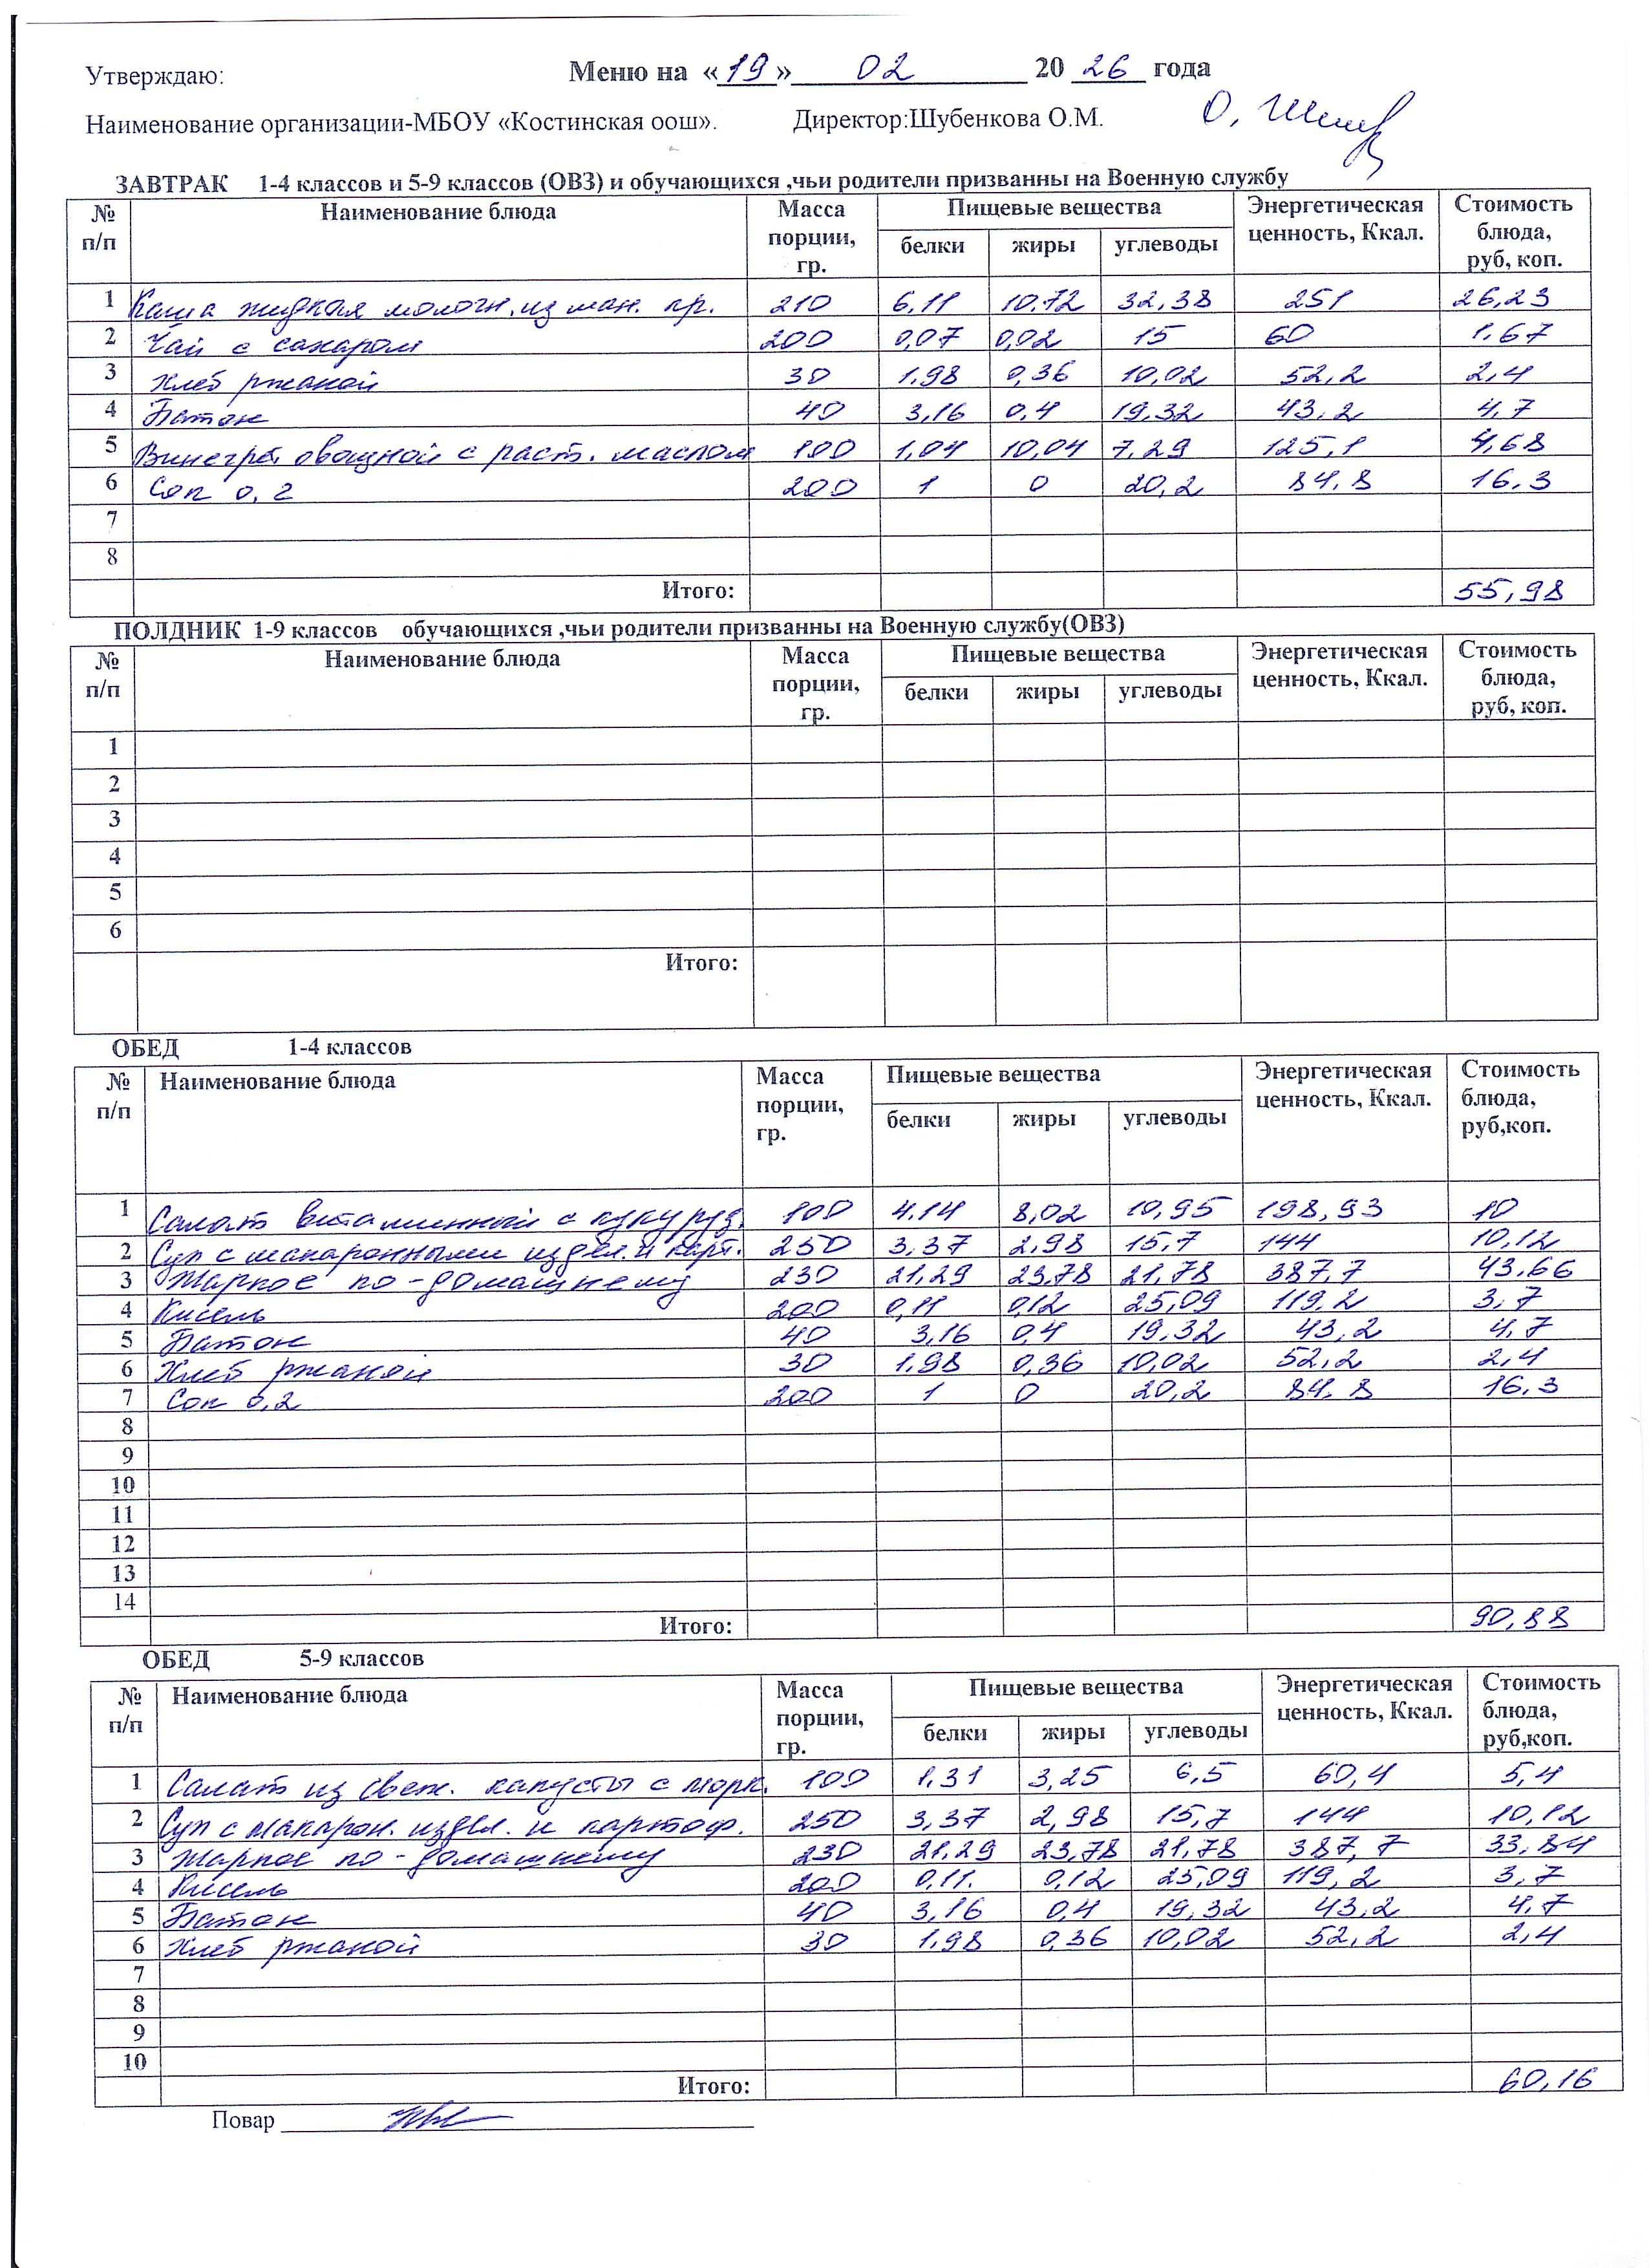 Утверждаю: Меню на «19» 02 20 26 года
Наименование организации-МБОУ «Костинская оош». Директор:Шубенкова О.М.
ЗАВТРАК 1-4 классов и 5-9 классов (ОВЗ) и обучающихся ,чьи родители призванны на Военную службу
№ п/п Наименование блюда Масса порции, гр. Пищевые вещества Энергетическая ценность, Ккал. Стоимость блюда, руб, коп.
белки жиры углеводы
1 Каша жидкая молочн. из ман. кр. 210 6,11 10,72 32,38 251 26,23
2 Чай с сахаром 200 0,07 0,02 15 60 1,67
3 Хлеб ржаной 30 1,98 0,36 10,02 52,2 2,4
4 Батон 40 3,16 0,4 19,32 43,2 4,7
5 Винегрет овощной с раст. маслом 100 1,04 10,04 7,29 125,1 4,68
6 Сок 0,2 200 1 0 20,2 84,8 16,3
7
8
Итого: 55,98
ПОЛДНИК 1-9 классов обучающихся ,чьи родители призванны на Военную службу(ОВЗ)
№ п/п Наименование блюда Масса порции, гр. Пищевые вещества Энергетическая ценность, Ккал. Стоимость блюда, руб, коп.
белки жиры углеводы
1
2
3
4
5
6
Итого:
ОБЕД 1-4 классов
№ п/п Наименование блюда Масса порции, гр. Пищевые вещества Энергетическая ценность, Ккал. Стоимость блюда, руб,коп.
белки жиры углеводы
1 Салат витаминный с кукуруз. 100 4,14 8,02 10,95 198,93 10
2 Суп с макаронными издел. и карт. 250 3,37 2,98 15,7 144 10,12
3 Жаркое по-домашнему 230 21,29 23,78 21,78 387,7 43,66
4 Кисель 200 0,11 0,12 25,09 119,2 3,7
5 Батон 40 3,16 0,4 19,32 43,2 4,7
6 Хлеб ржаной 30 1,98 0,36 10,02 52,2 2,4
7 Сок 0,2 200 1 0 20,2 84,8 16,3
8
9
10
11
12
13
14
Итого: 90,88
ОБЕД 5-9 классов
№ п/п Наименование блюда Масса порции, гр. Пищевые вещества Энергетическая ценность, Ккал. Стоимость блюда, руб,коп.
белки жиры углеводы
1 Салат из свеж. капусты с морк. 100 1,31 3,25 6,5 60,4 5,4
2 Суп с макарон. издел. и картоф. 250 3,37 2,98 15,7 144 10,12
3 Жаркое по-домашнему 230 21,29 23,78 21,78 387,7 33,84
4 Кисель 200 0,11. 0,12 25,09 119,2 3,7
5 Батон 40 3,16 0,4 19,32 43,2 4,7
6 Хлеб ржаной 30 1,98 0,36 10,02 52,2 2,4
7
8
9
10
Итого: 60,16
Повар